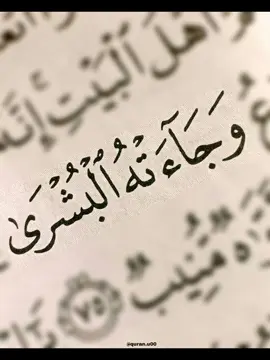 أَهْلَ ٱلْبَيْتِ
وَجَآءَتْهُ ٱلْبُشْرَىٰ
مُّنِيبٌ ٧٥
@quran.u00